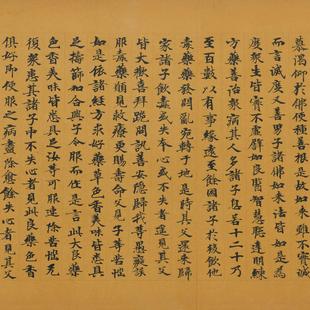 慕渴仰於佛便種善根是故如來雖不實滅
而言滅度又善男子諸佛如來法皆如是為
度衆生皆實不虛譬如良醫智慧聰達明練
方藥善治衆病其人多諸子息若十二十乃
至百數以有事緣遠至餘國諸子於後飲他
毒藥藥發悶亂宛轉于地是時其父還來歸
家諸子飲毒或失本心或不失者遙見其父
皆大歡喜拜跪問訊善安隱歸我等愚癡誤
服毒藥願見救療更賜壽命父見子等苦惱
如是依諸經方求好藥草色香美味皆悉具
足擣篩和合與子令服而作是言此大良藥
色香美味皆悉具足汝等可服速除苦惱无
復衆患其諸子中不失心者見此良藥色香
俱好即便服之病盡除愈餘失心者見其父